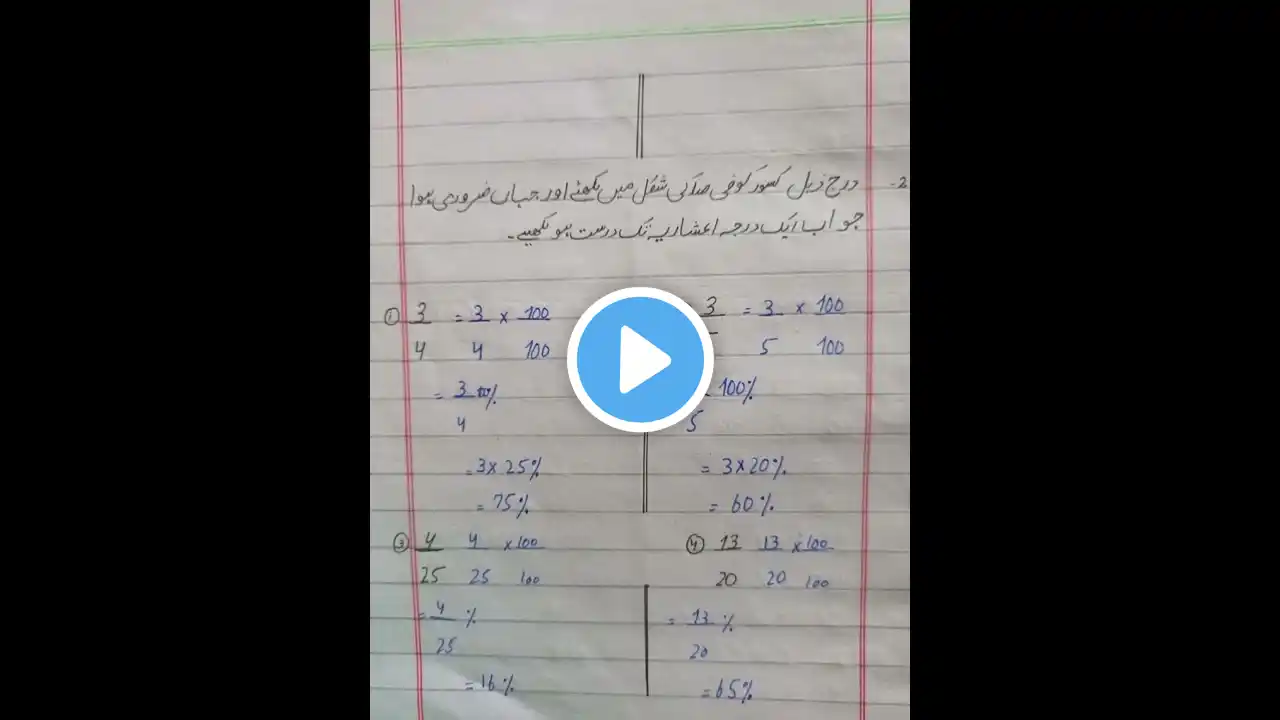 2- درج ذیل کسور کو فی صد کی شکل میں لکھئے اور جہاں ضروری ہوا
جواب ایک درجہ اعشاریہ تک درست ہو لکھیے۔
① 3/4 = 3/4 × 100/100
= 3/4 100%
= 3 × 25%
= 75%
3 = 3/5 × 100/100
100%
5
= 3 × 20%
= 60%
③ 4/25 4/25 × 100/100
= 4/25 %
= 16%
④ 13/20 13/20 × 100/100
= 13/20 %
= 65%